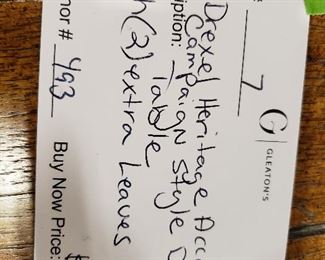 7
G
GLEATON'S
Drexel Heritage Acc
Campaign Style D
iption:
Table
(2) extra Leaves
nor # 493
Buy Now Price: $